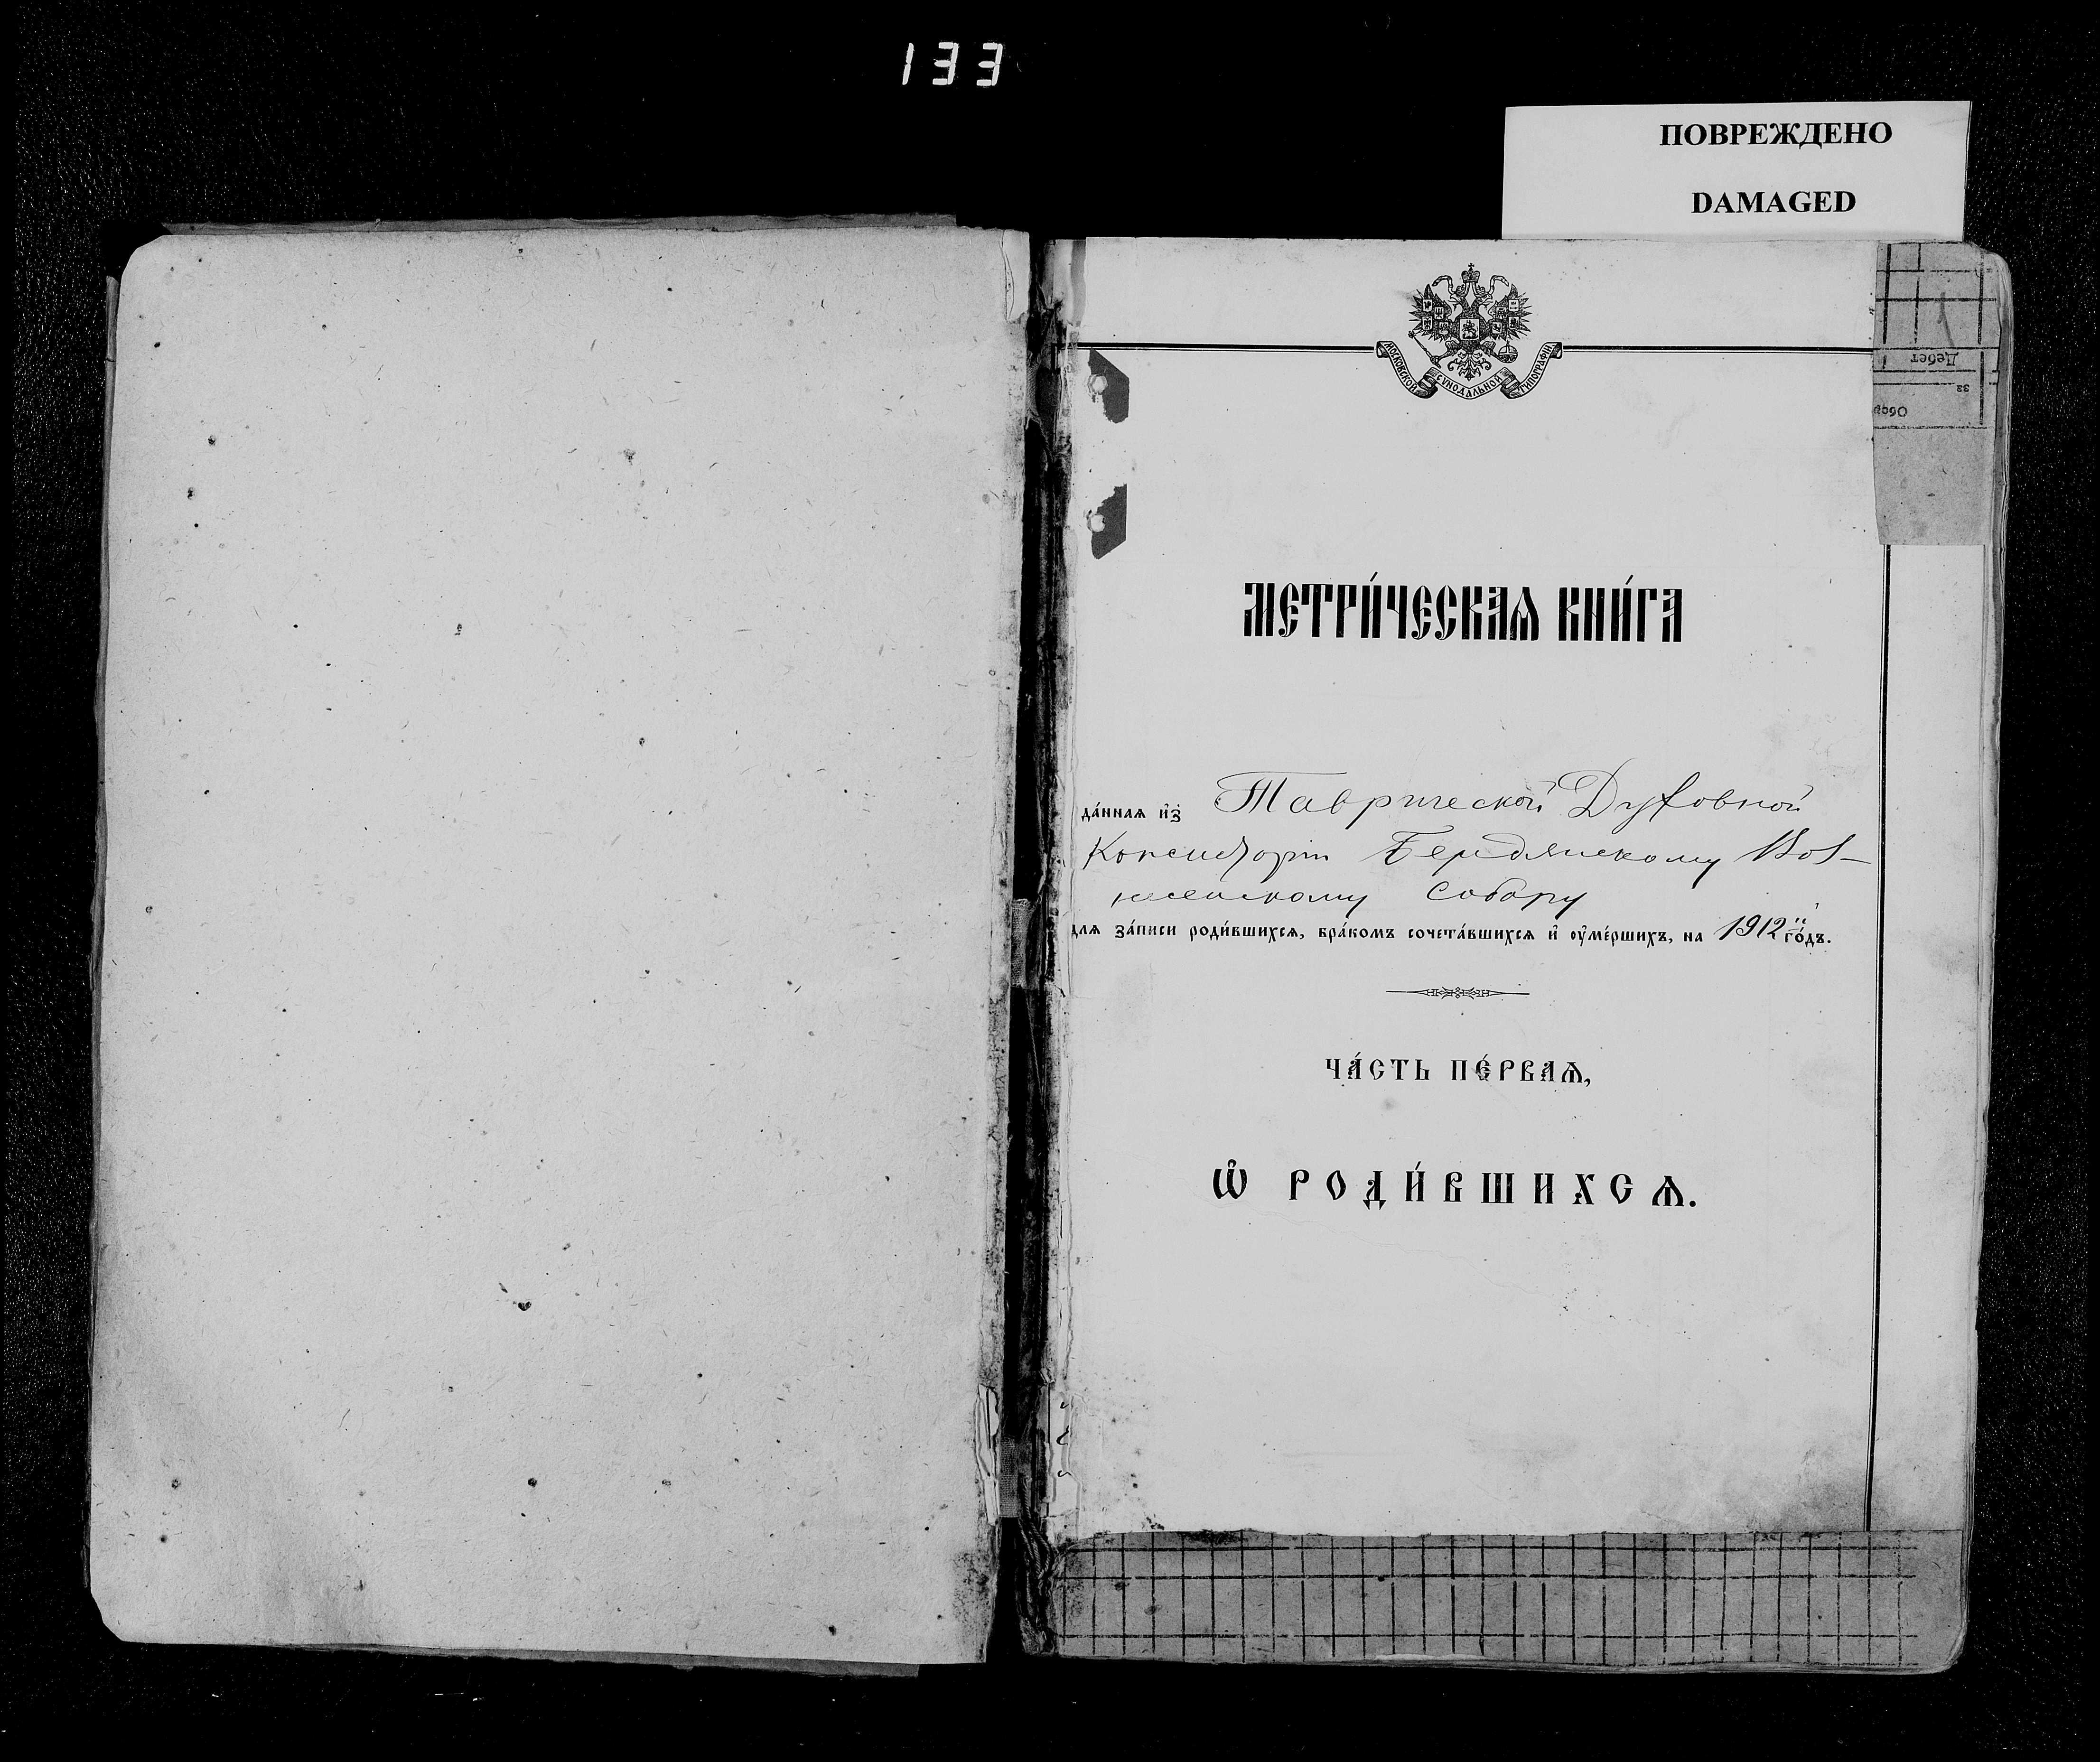 133
ПОВРЕЖДЕНО
DAMAGED
МОСКОВСКОЙ СѴНОДАЛЬНОЙ ТИПОГРАФІИ
Дебет
33
МЕТРИ́ЧЕСКАѦ КНИ́ГА
да́ннаѧ и҆з̾ Таврической Духовной
Консисторіи Бердянскому Воз-
несенскому Собору
длѧ за́писи роди́вшихсѧ, бра́комъ сочета́вшихсѧ и҆ ᲂу҆ме́ршихъ, на 1912й го́дъ.
ЧА́СТЬ ПЕ́РВАѦ,
Ѽ РОДИ́ВШИХСѦ.